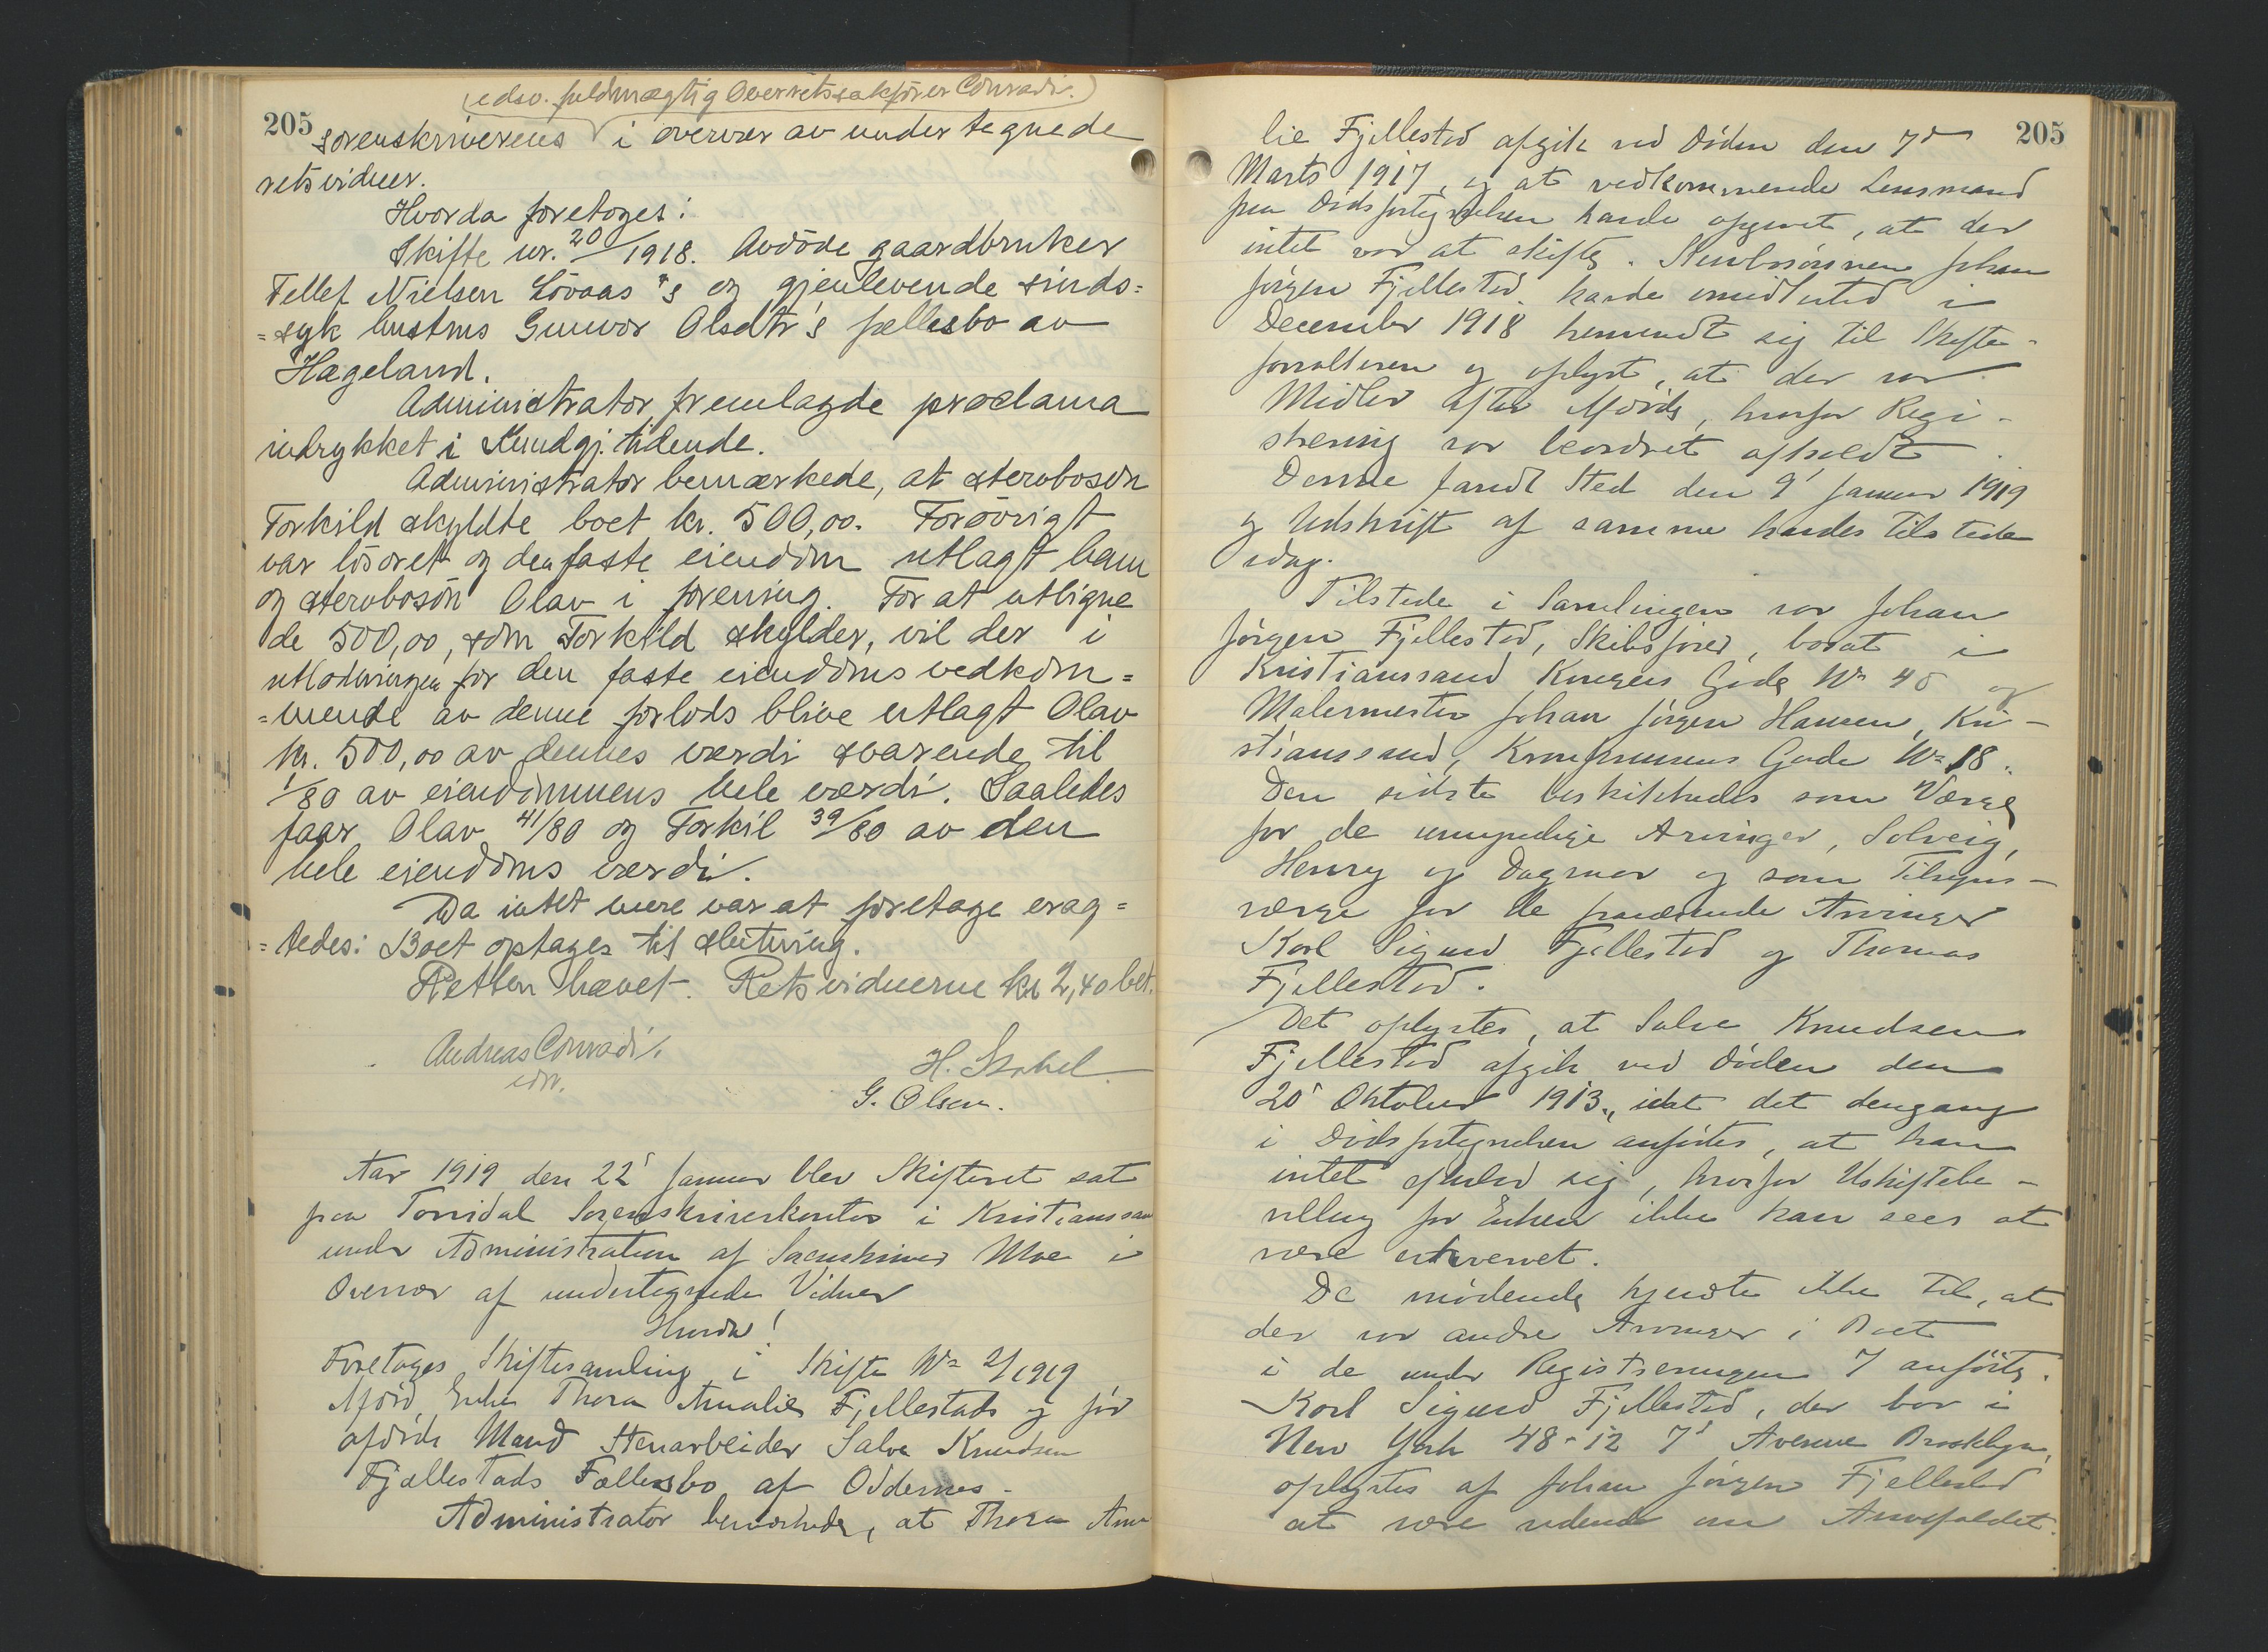 (edsv. fuldmægtig Overretssakfører Conradi.)
205
sorenskriverens i overvær av undertegnede
retsvidner.
Hvorda foretoges:
Skifte nr. 20/1918. Avdöde gaardbruker
Tellef Nielsen Lövaas's og gjenlevende sinds=
=syk hustrus Gunvor Olsdtr's fællesbo av
Hægeland.
Administrator fremlagde proclama
indrykket i Kundgj.tidende.
Administrator bemærkede, at sterboson
Torkild skyldte boet kr. 500,00. Forövrigt
var lösöret og den faste eiendom utlagt ham
og sterbosön Olav i forening. For at utligne
de 500,00, som Torkild skylder, vil der i
utlodningen for den faste eiendoms vedkom=
=mende av denne forlods blive utlagt Olav
kr. 500,00 av dennes værdi svarende til
1/80 av eiendommens hele værdi. Saaledes
faar Olav 41/80 og Torkil 39/80 av den
hele eiendoms værdi.
Da intet mere var at foretage erag=
=tedes: Boet optages til slutning.
Retten hævet. Retsvidnerne kr 2,40 bet.
Andreas Conradi.
edsv.
H.
G. Olsen.
Aar 1919 den 22' Januar blev Skifteret sat
paa Torridal Sorenskriverkontor i Kristianssand
under Administration af Sorenskriver Moe i
Overvær af undertegnede Vidner
Hvorda!
Foretoges Skiftesamling i Skifte No 2/1919
Afdöd Enke Thora Amalie Fjellestads og før
afdöde Mand Stenarbeider Salve Knudsen
Fjællestads Fællesbo af Oddernes.
Administrator bemærkede, at Thora Ama
205
lie Fjellestad afgik ved Döden den 7de
Marts 1917, og at vedkommende Lensmand
paa Dödsfortegnelsen havde opgivet, at der
intet var at skifte. Stervbosönnen Johan
Jörgen Fjellestad havde imidlertid i
December 1918 henvendt sig til Skifte-
forvalteren og oplyst, at der var
Midler efter Afdöde, hvorfor Regi-
strering var beordret afholdt.
Denne fandt Sted den 9' Januar 1919
og Udskrift af samme havdes tilstede
idag.
Tilstede i Samlingen var Johan
Jörgen Fjellestad, Skibsförer, bosat i
Kristianssand Kongens Gade No 45 og
Malermester Johan Jörgen Hansen, Kri-
stianssand, Kronprinsens Gade No 18.
Den sidste beskikkedes som Værge
for de umyndige Arvinger, Solveig,
Henry og Dagmar og som Tilsyns-
værge for de fraværende Arvinger
Karl Sigurd Fjellestad og Thomas
Fjellestad.
Det oplystes, at Salve Knudsen
Fjellestad afgik ved Döden den
20' Oktober 1913, idet det dengang
i Dödsfortegnelsen anförtes, at han
intet efterlod sig, hvorfor Uskiftebe-
villing for Enken ikke kan sees at
være erhvervet.
De mödende kjendte ikke til, at
der var andre Arvinger i Boet
i de under Registreringen 7 anförte.
Karl Sigurd Fjellestad, der bor i
New York 48-12 7d Avenue Brooklyn,
oplystes af Johan Jörgen Fjellestad
at være vidende om Arvefaldet.